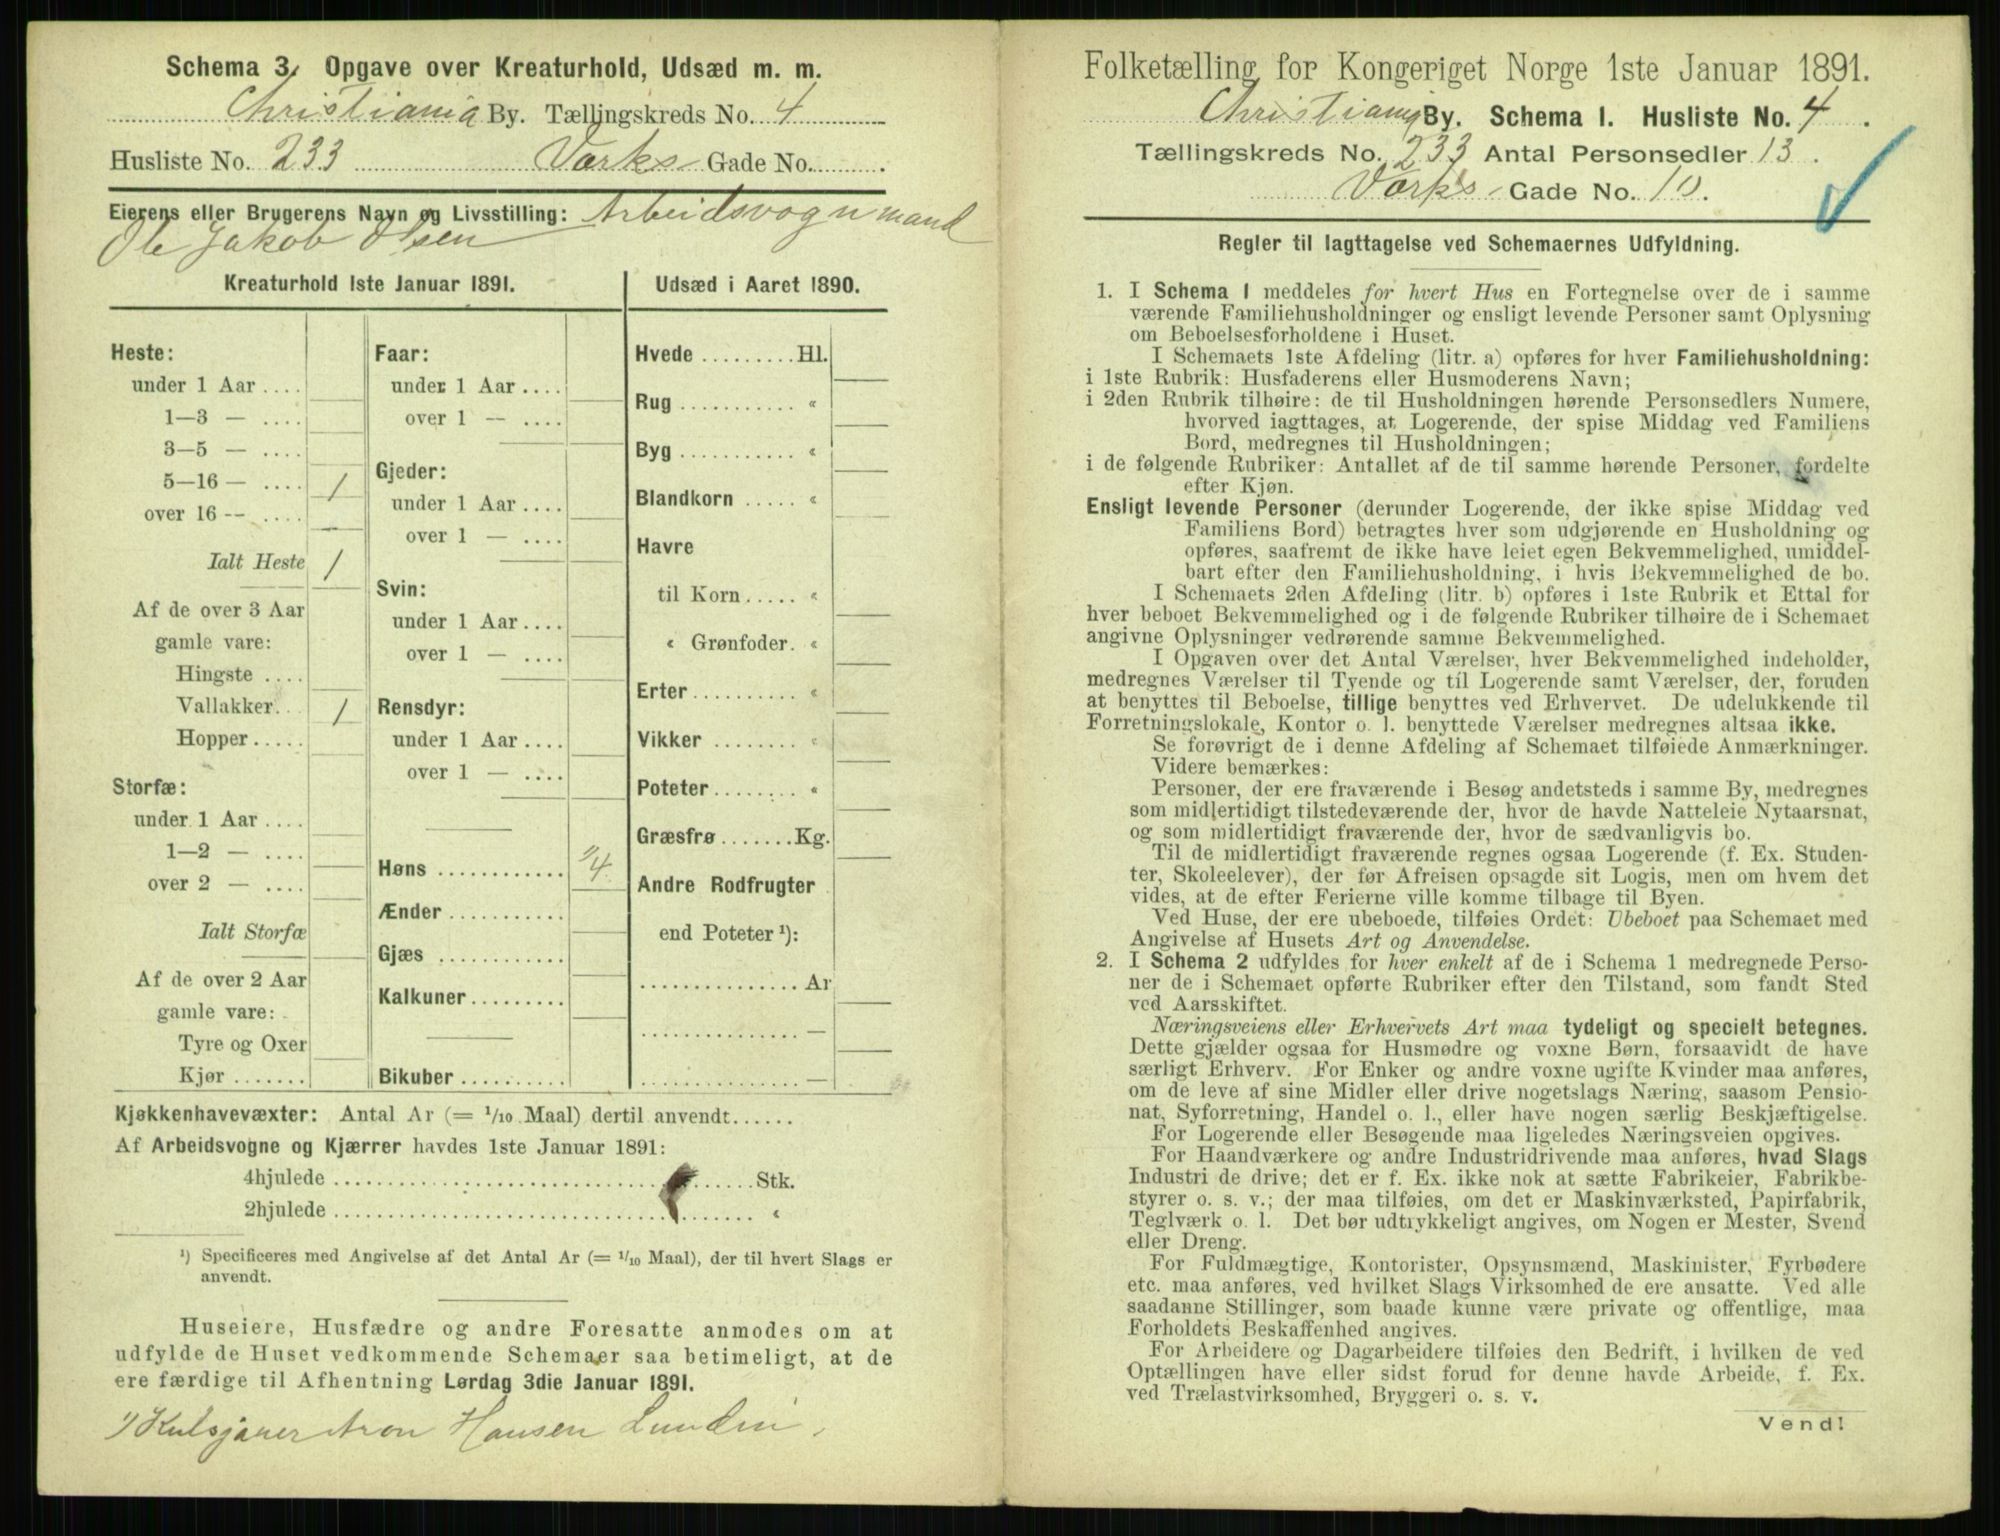 Schema 3. Opgave over Kreaturhold, Udsæd m. m.
Christiania By. Tællingskreds No. 4
Husliste No. 233 Værks Gade No.
Eierens eller Brugerens Navn og Livsstilling: Arbeidsvognmand
Ole Jakob Olsen
Kreaturhold 1ste Januar 1891.
Heste:
under 1 Aar ....
1—3 — ....
3—5 — ....
5—16 — .... 1
over 16 -- ....
Ialt Heste 1
Af de over 3 Aar
gamle vare:
Hingste ....
Vallakker.. 1
Hopper.....
Storfæ:
under 1 Aar ....
1—2 — ....
over 2 — ....
Ialt Storfæ
Af de over 2 Aar
gamle vare:
Tyre og Oxer
Kjør .......
Faar:
under 1 Aar ....
over 1 — ....
Gjeder:
under 1 Aar ....
over 1 — ....
Svin:
under 1 Aar ....
over 1 — ....
Rensdyr:
under 1 Aar ....
over 1 — ....
Høns ............ 1) 4
Ænder ...........
Gjæs ............
Kalkuner.........
Bikuber ..........
Udsæd i Aaret 1890.
Hvede .........Hl.
Rug ........... «
Byg ........... «
Blandkorn ..... «
Havre
til Korn..... «
« Grønfoder. «
Erter.......... «
Vikker ........ «
Poteter........ «
Græsfrø .......Kg.
Andre Rodfrugter
end Poteter ¹):
............... Ar
............... —
............... —
Kjøkkenhavevæxter: Antal Ar (= 1/10 Maal) dertil anvendt......
Af Arbeidsvogne og Kjærrer havdes 1ste Januar 1891:
4hjulede ........................................ Stk.
2hjulede ........................................ «
¹) Specificeres med Angivelse af det Antal Ar (= 1/10 Maal), der til hvert Slags er
anvendt.
Huseiere, Husfædre og andre Foresatte anmodes om at
udfylde de Huset vedkommende Schemaer saa betimeligt, at de
ere færdige til Afhentning Lørdag 3die Januar 1891.
1) Kulsjauer Aron Hansen Lundin.
Folketælling for Kongeriget Norge 1ste Januar 1891.
Christiania By. Schema I. Husliste No. 4.
Tællingskreds No. 233 Antal Personsedler 13.
Værks Gade No. 10.
Regler til Iagttagelse ved Schemaernes Udfyldning.
1. I Schema I meddeles for hvert Hus en Fortegnelse over de i samme
værende Familiehusholdninger og ensligt levende Personer samt Oplysning
om Beboelsesforholdene i Huset.
I Schemaets 1ste Afdeling (litr. a) opføres for hver Familiehusholdning:
i 1ste Rubrik: Husfaderens eller Husmoderens Navn;
i 2den Rubrik tilhøire: de til Husholdningen hørende Personsedlers Numere,
hvorved iagttages, at Logerende, der spise Middag ved Familiens
Bord, medregnes til Husholdningen;
i de følgende Rubriker: Antallet af de til samme hørende Personer, fordelte
efter Kjøn.
Ensligt levende Personer (derunder Logerende, der ikke spise Middag ved
Familiens Bord) betragtes hver som udgjørende en Husholdning og
opføres, saafremt de ikke have leiet egen Bekvemmelighed, umiddel-
bart efter den Familiehusholdning, i hvis Bekvemmelighed de bo.
I Schemaets 2den Afdeling (litr. b) opføres i 1ste Rubrik et Ettal for
hver beboet Bekvemmelighed og i de følgende Rubriker tilhøire de i Schemaet
angivne Oplysninger vedrørende samme Bekvemmelighed.
I Opgaven over det Antal Værelser, hver Bekvemmelighed indeholder,
medregnes Værelser til Tyende og til Logerende samt Værelser, der, foruden
at benyttes til Beboelse, tillige benyttes ved Erhvervet. De udelukkende til
Forretningslokale, Kontor o. l. benyttede Værelser medregnes altsaa ikke.
Se forøvrigt de i denne Afdeling af Schemaet tilføiede Anmærkninger.
Videre bemærkes:
Personer, der ere fraværende i Besøg andetsteds i samme By, medregnes
som midlertidigt tilstedeværende der, hvor de havde Natteleie Nytaarsnat,
og som midlertidigt fraværende der, hvor de sædvanligvis bo.
Til de midlertidigt fraværende regnes ogsaa Logerende (f. Ex. Studen-
ter, Skoleelever), der før Afreisen opsagde sit Logis, men om hvem det
vides, at de efter Ferierne ville komme tilbage til Byen.
Ved Huse, der ere ubeboede, tilføies Ordet: Ubeboet paa Schemaet med
Angivelse af Husets Art og Anvendelse.
2. I Schema 2 udfyldes for hver enkelt af de i Schema 1 medregnede Perso-
ner de i Schemaet opførte Rubriker efter den Tilstand, som fandt Sted
ved Aarsskiftet.
Næringsveiens eller Erhvervets Art maa tydeligt og specielt betegnes.
Dette gjælder ogsaa for Husmødre og voxne Børn, forsaavidt de have
særligt Erhverv. For Enker og andre voxne ugifte Kvinder maa anføres,
om de leve af sine Midler eller drive nogetslags Næring, saasom Pensio-
nat, Syforretning, Handel o. l., eller have nogen særlig Beskjæftigelse.
For Logerende eller Besøgende maa ligeledes Næringsveien opgives.
For Haandværkere og andre Industridrivende maa anføres, hvad Slags
Industri de drive; det er f. Ex. ikke nok at sætte Fabrikeier, Fabrikbe-
styrer o. s. v.; der maa tilføies, om det er Maskinværksted, Papirfabrik,
Teglværk o. l. Det bør udtrykkeligt angives, om Nogen er Mester, Svend
eller Dreng.
For Fuldmægtige, Kontorister, Opsynsmænd, Maskinister, Fyrbødere
etc. maa anføres, ved hvilket Slags Virksomhed de ere ansatte. Ved alle
saadanne Stillinger, som baade kunne være private og offentlige, maa
Forholdets Beskaffenhed angives.
For Arbeidere og Dagarbeidere tilføies den Bedrift, i hvilken de ved
Optællingen have eller sidst forud for denne havde Arbeide, f. Ex.
ved Trælastvirksomhed, Bryggeri o. s. v.
Vend!